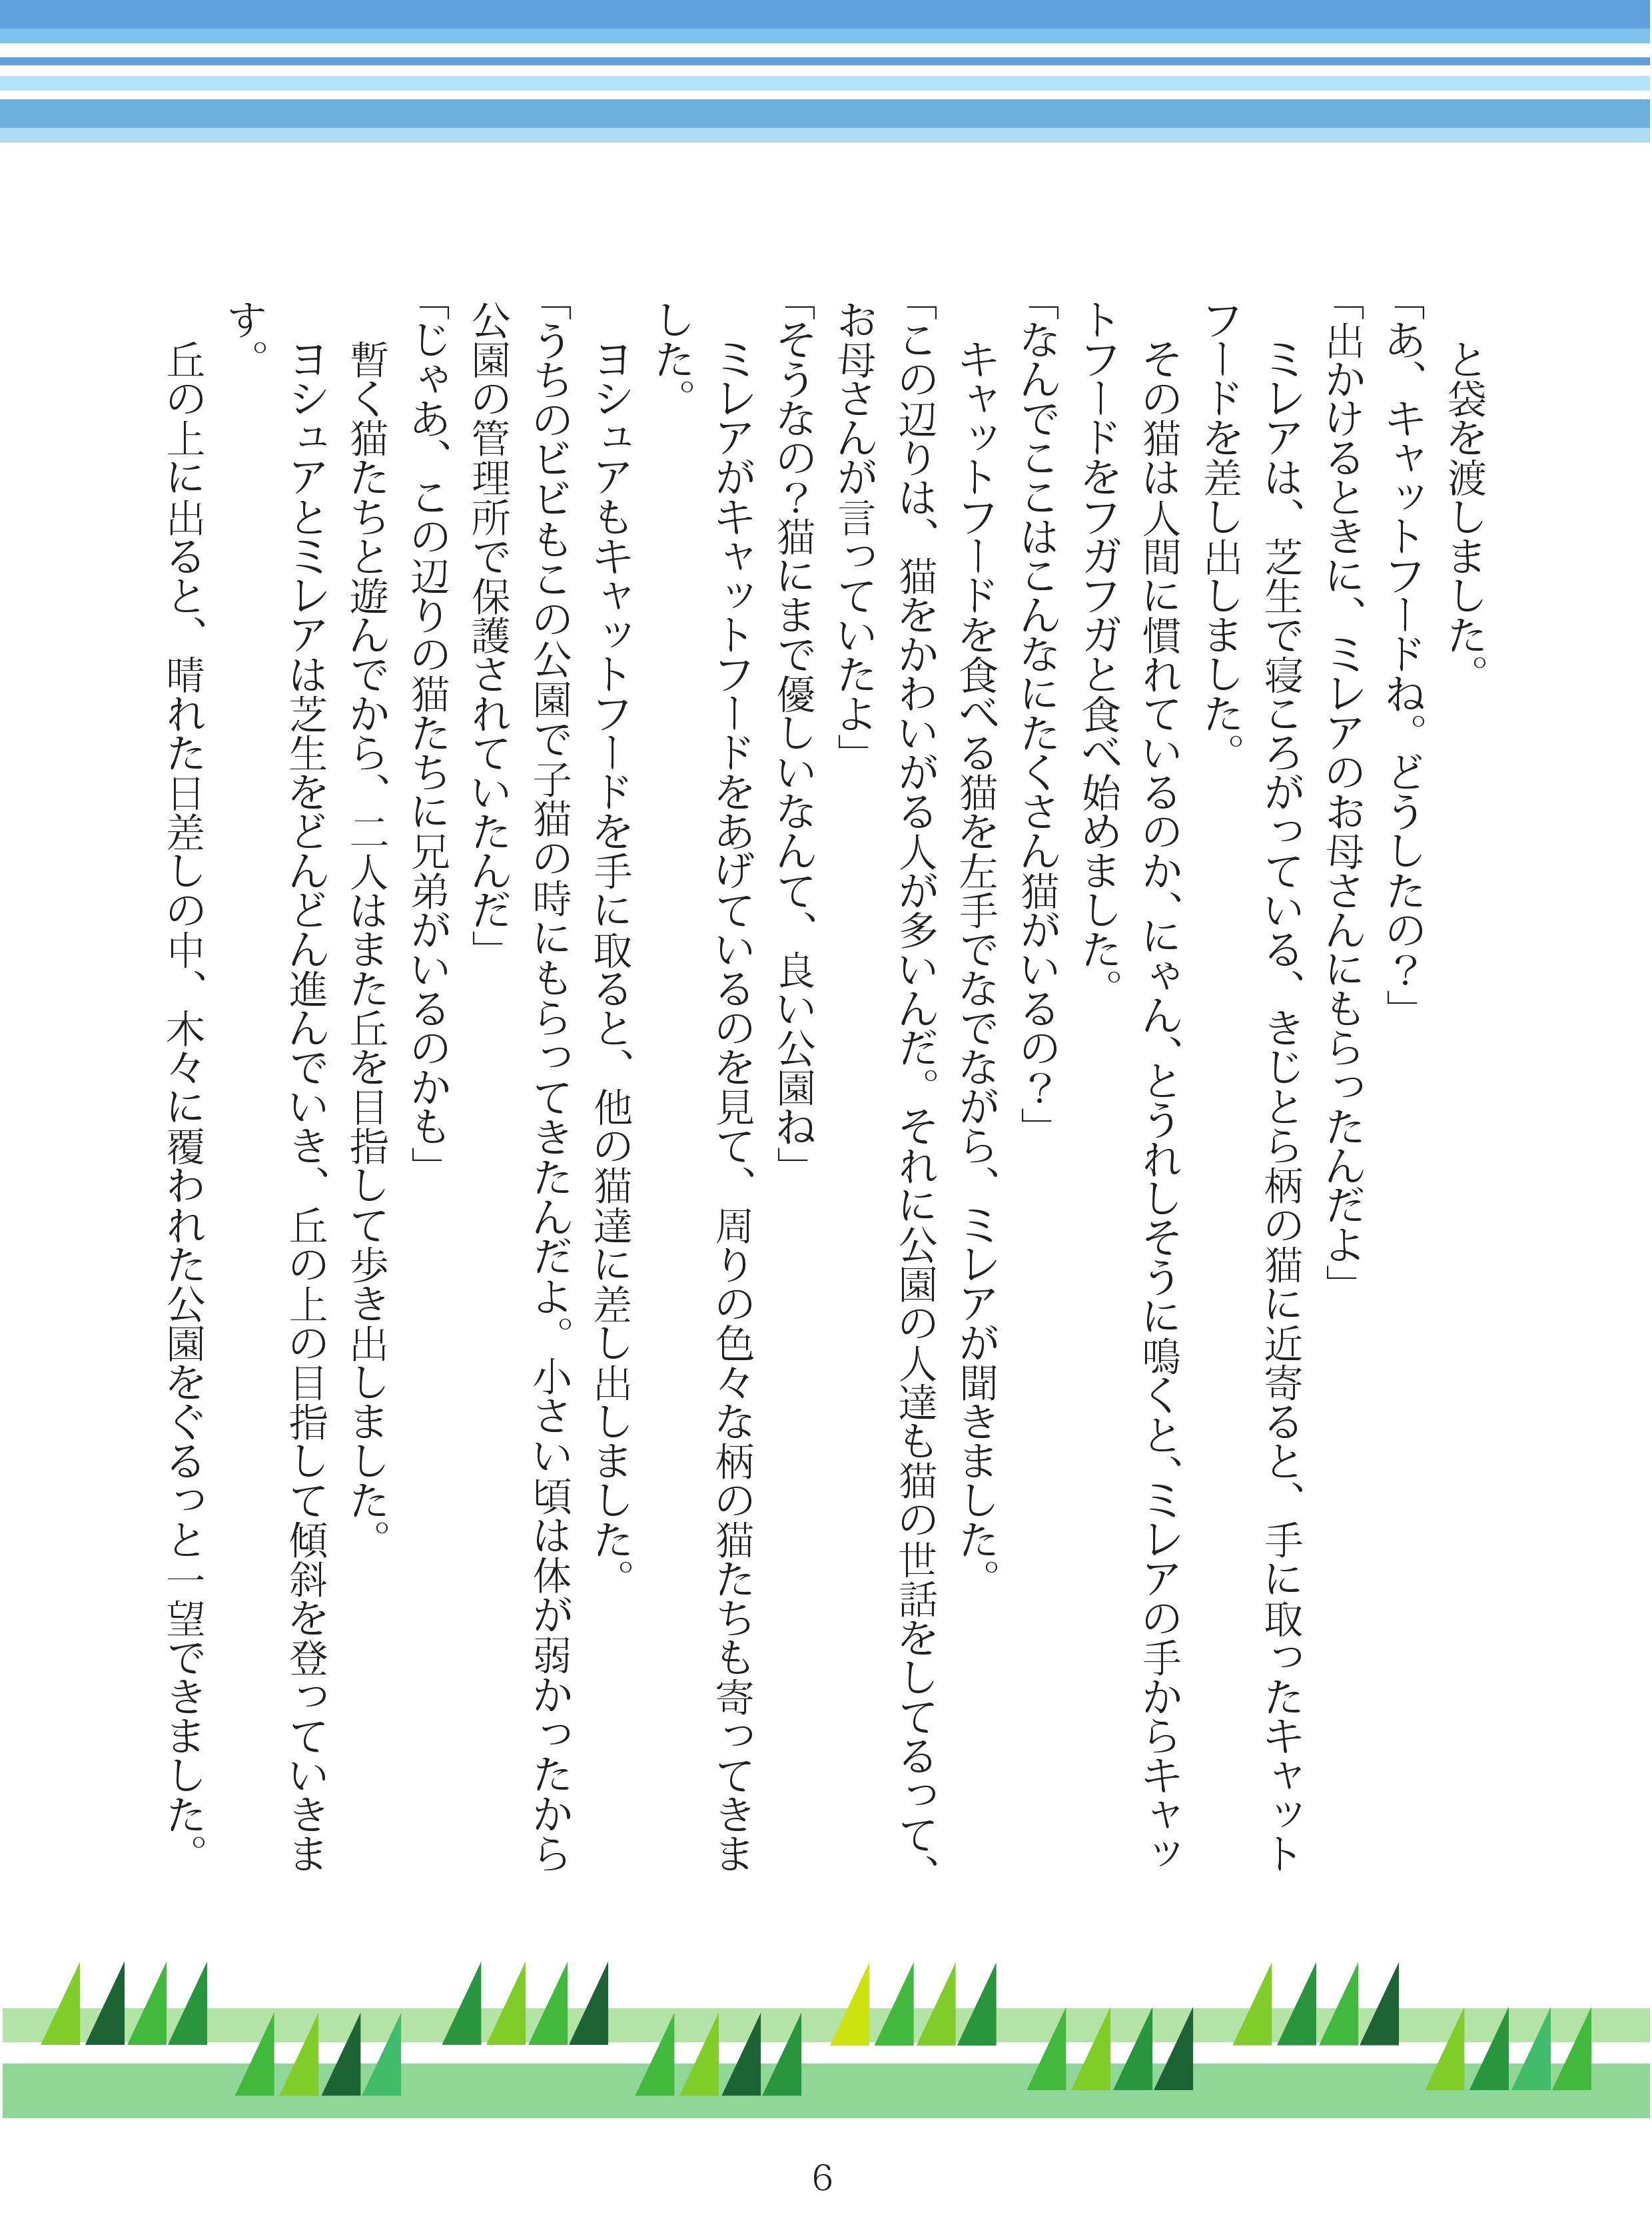 と袋を渡しました。
「あ、キャットフードね。どうしたの？」
「出かけるときに、ミレアのお母さんにもらったんだよ」
　ミレアは、芝生で寝ころがっている、きじとら柄の猫に近寄ると、手に取ったキャット
フードを差し出しました。
　その猫は人間に慣れているのか、にゃん、とうれしそうに鳴くと、ミレアの手からキャッ
トフードをフガフガと食べ始めました。
「なんでここはこんなにたくさん猫がいるの？」
　キャットフードを食べる猫を左手でなでながら、ミレアが聞きました。
「この辺りは、猫をかわいがる人が多いんだ。それに公園の人達も猫の世話をしてるって、
お母さんが言っていたよ」
「そうなの？猫にまで優しいなんて、良い公園ね」
　ミレアがキャットフードをあげているのを見て、周りの色々な柄の猫たちも寄ってきま
した。
　ヨシュアもキャットフードを手に取ると、他の猫達に差し出しました。
「うちのビビもこの公園で子猫の時にもらってきたんだよ。小さい頃は体が弱かったから
公園の管理所で保護されていたんだ」
「じゃあ、この辺りの猫たちに兄弟がいるのかも」
　暫く猫たちと遊んでから、二人はまた丘を目指して歩き出しました。
　ヨシュアとミレアは芝生をどんどん進んでいき、丘の上の目指して傾斜を登っていきま
す。
　丘の上に出ると、晴れた日差しの中、木々に覆われた公園をぐるっと一望できました。
6